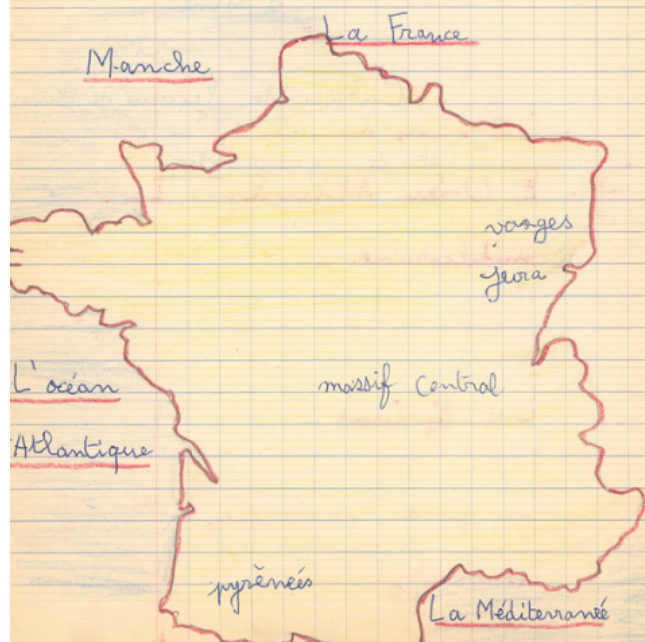 La France
Manche
vosges
jura
L'océan
massif Central
Atlantique
pyrèneés
La Méditerranée